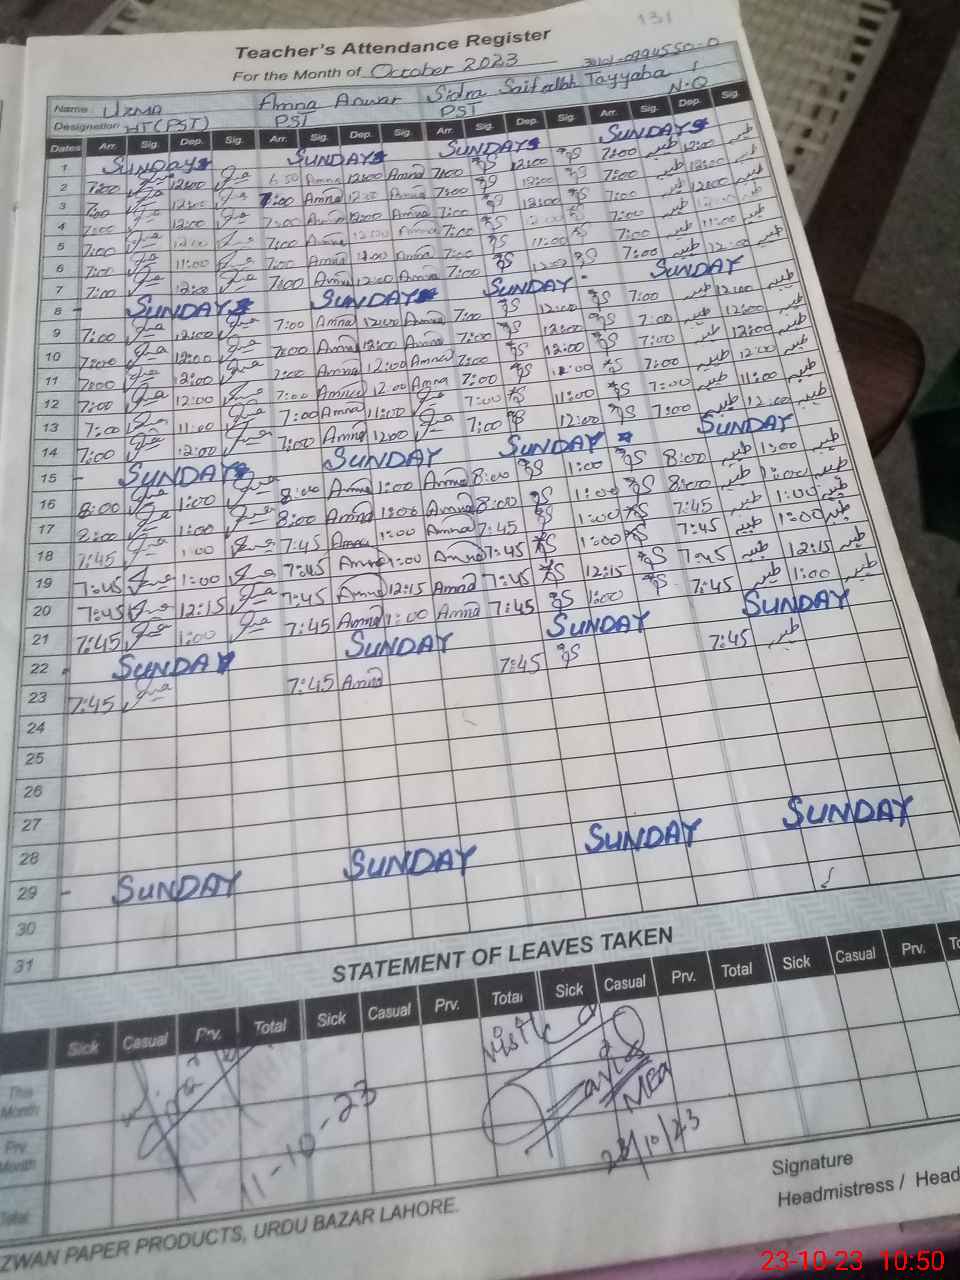 131
Teacher's Attendance Register
For the Month of October 2023
Name: Uzma Amna Anwar Sidra Saifullah Tayyaba
Designation HT(PST) PST PST N.Q
Dates Arr. Sig. Dep. Sig. Arr. Sig. Dep. Sig. Arr. Sig. Dep. Sig. Arr. Sig. Dep. Sig.
1 SUNDAY SUNDAY SUNDAY SUNDAY
2 7:00 12:00 6:50 Amna 12:00 Amna 7:00 12:00 7:00 طیبہ 12:00 طیبہ
3 7:00 12:00 7:00 Amna 12:00 Amna 7:00 12:00 7:00 طیبہ 12:00 طیبہ
4 7:00 12:00 7:00 Amna 12:00 Amna 7:00 12:00 7:00 طیبہ 12:00 طیبہ
5 7:00 12:00 7:00 Amna 12:00 Amna 7:00 12:00 7:00 طیبہ 12:00 طیبہ
6 7:00 11:00 7:00 Amna 11:00 Amna 7:00 11:00 7:00 طیبہ 11:00 طیبہ
7 7:00 12:00 7:00 Amna 12:00 Amna 7:00 12:00 7:00 طیبہ 12:00 طیبہ
8 - SUNDAY SUNDAY SUNDAY SUNDAY
9 7:00 12:00 7:00 Amna 12:00 Amna 7:00 12:00 7:00 طیبہ 12:00 طیبہ
10 7:00 12:00 7:00 Amna 12:00 Amna 7:00 12:00 7:00 طیبہ 12:00 طیبہ
11 7:00 12:00 7:00 Amna 12:00 Amna 7:00 12:00 7:00 طیبہ 12:00 طیبہ
12 7:00 12:00 7:00 Amna 12:00 Amna 7:00 12:00 7:00 طیبہ 12:00 طیبہ
13 7:00 11:00 7:00 Amna 11:00 7:00 11:00 7:00 طیبہ 11:00 طیبہ
14 7:00 12:00 7:00 Amna 12:00 7:00 12:00 7:00 طیبہ 12:00 طیبہ
15 - SUNDAY SUNDAY SUNDAY SUNDAY
16 8:00 1:00 8:00 Amna 1:00 Amna 8:00 1:00 8:00 طیبہ 1:00 طیبہ
17 8:00 1:00 8:00 Amna 1:00 Amna 8:00 1:00 8:00 طیبہ 1:00 طیبہ
18 7:45 1:00 7:45 Amna 1:00 Amna 7:45 1:00 7:45 طیبہ 1:00 طیبہ
19 7:45 1:00 7:45 Amna 1:00 Amna 7:45 1:00 7:45 طیبہ 1:00 طیبہ
20 7:45 12:15 7:45 Amna 12:15 Amna 7:45 12:15 7:45 طیبہ 12:15 طیبہ
21 7:45 1:00 7:45 Amna 1:00 Amna 7:45 1:00 7:45 طیبہ 1:00 طیبہ
22 SUNDAY SUNDAY SUNDAY SUNDAY
23 7:45 7:45 Amna 7:45 7:45 طیبہ
24
25
26
27
28
29 - SUNDAY SUNDAY SUNDAY SUNDAY
30
31
STATEMENT OF LEAVES TAKEN
Sick Casual Prv. Total Sick Casual Prv. Total Sick Casual Prv. Total Sick Casual Prv. To
This Month
Prv. Month
Total
Visited
MEA
11-10-23
23/10/23
Signature
Headmistress / Head
ZWAN PAPER PRODUCTS, URDU BAZAR LAHORE.
23-10-23 10:50